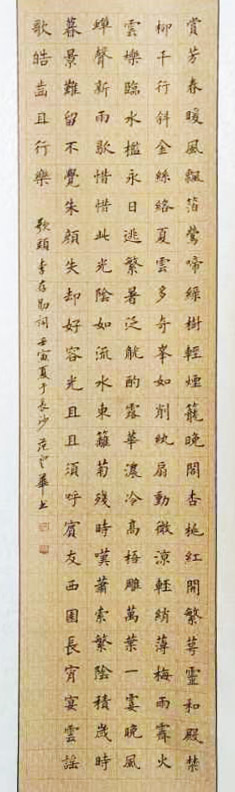 賞芳春暖風飄箔鶯啼綠樹輕煙籠晚閣杏桃紅開繁萼靈和殿禁
柳千行斜金絲絡夏雲多奇峯如削紈扇動微涼輕綃薄梅雨霽火
雲爍臨水檻永日逃繁暑泛觥酌露華濃冷高梧雕萬葉一霎晚風
蟬聲新雨歇惜惜此光陰如流水東籬菊殘時嘆蕭索繁陰積歲時
暮景難留不覺朱顏失却好容光且且須呼賓友西園長宵宴雲謠
歌皓齒且行樂
歌頭李存勖詞壬寅夏于長沙范華